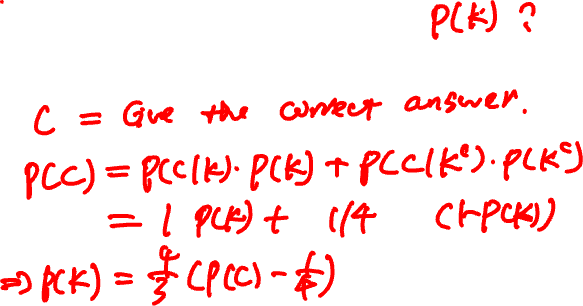 P(K) ?
C = Give the correct answer.
P(C) = P(C|K)·P(K) + P(C|K^c)·P(K^c)
= 1 P(K) + 1/4 (1-P(K))
⇒ P(K) = 4/3 (P(C) - 1/4)